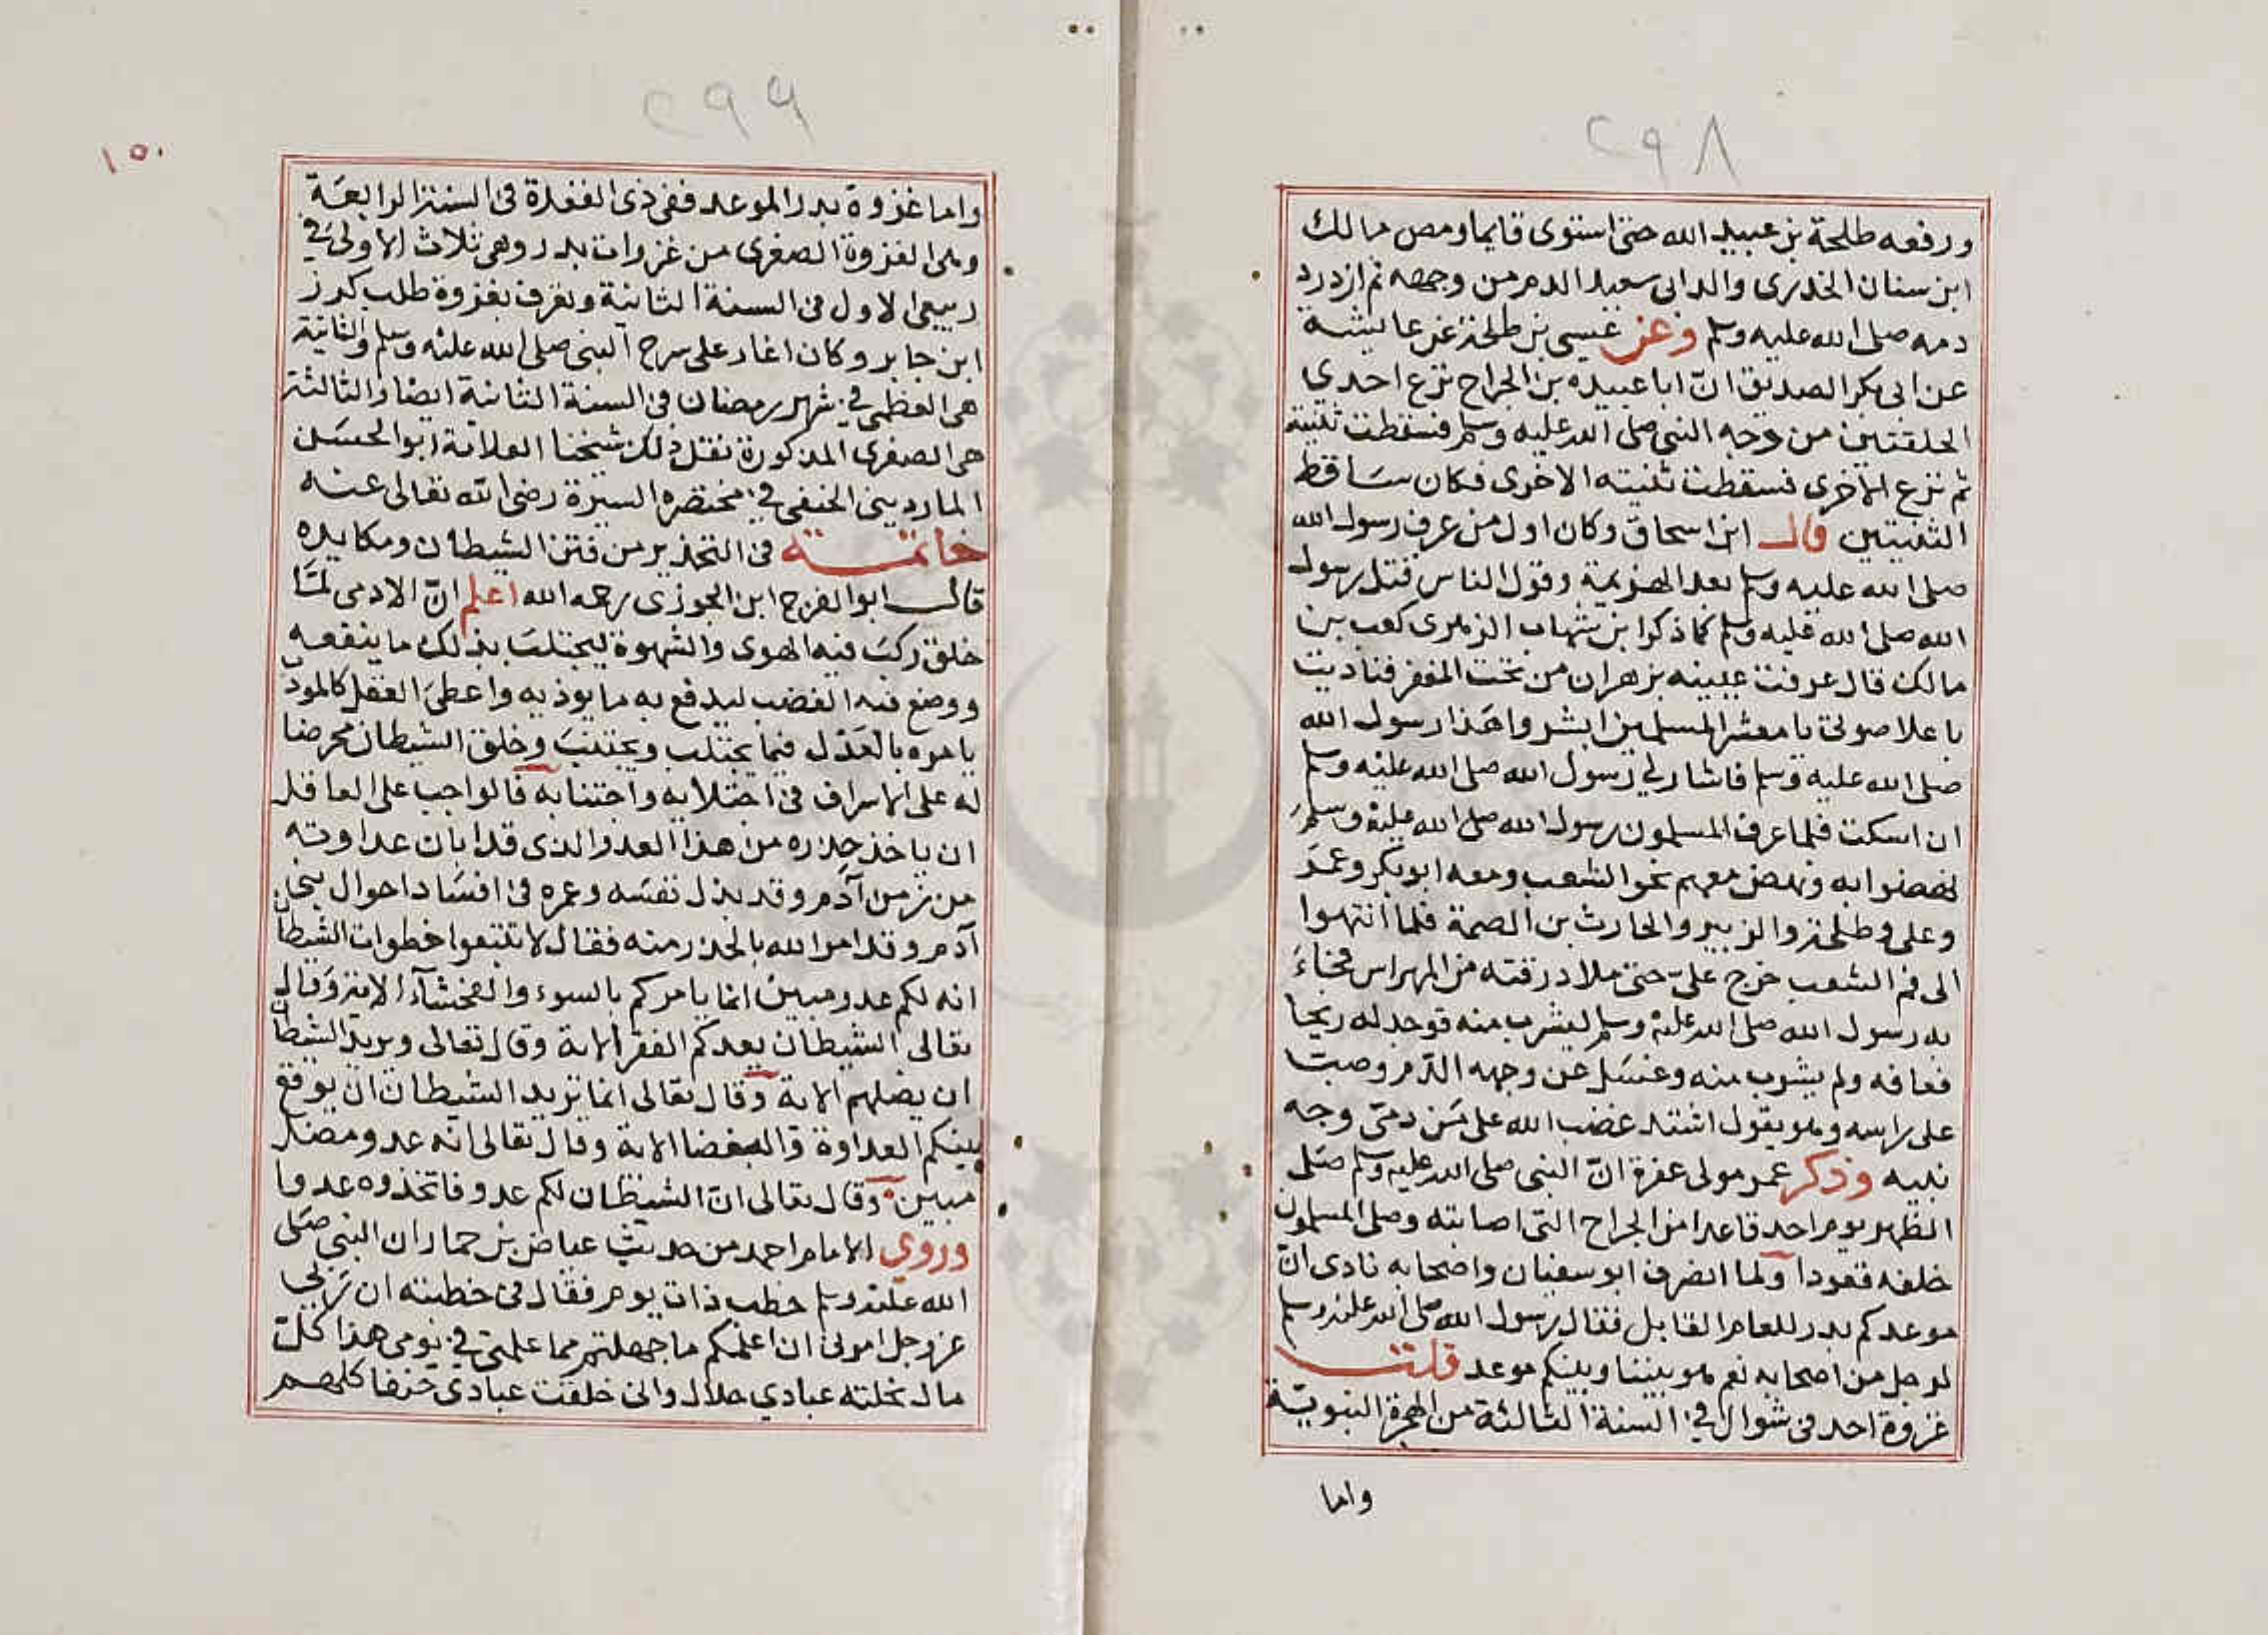 ٢٩٨
ورفعه طلحة بن عبيد الله حتى استوى قايما ومص مالك
ابن سنان الخدرى والد ابى سعيد الدم من وجهه ثم ازدرد
دمه صلى الله عليه وسلم وعن عيسى بن طلحة عن عايشة
عن ابى بكر الصديق انّ ابا عبيده بن الجراح نزع احدي
الحلقتين من وجه النبى صلى الله عليه وسلم فسقطت ثنيته
ثم نزع الاخرى فسقطت ثنيته الاخرى فكان ساقط
الثنيتين قال ابن اسحاق وكان اول من عرف رسول الله
صلى الله عليه وسلم بعد الهزيمة وقول الناس قتل رسول
الله صلى الله عليه وسلم كما ذكر ابن شهاب الزهرى كعب بن
مالك قال عرفت عينيه تزهران من تحت المغفر فناديت
باعلا صوتى يا معشر المسلمين ابشروا هذا رسول الله
صلى الله عليه وسلم فاشار لي رسول الله صلى الله عليه وسلم
ان اسكت فلما عرف المسلمون رسول الله صلى الله عليه وسلم
نهضوا به ونهض معهم نحو الشعب ومعه ابو بكر وعمر
وعلى وطلحة والزبير والحارث بن الصمة فلما انتهوا
الى فم الشعب خرج علىّ حتى ملا درقته من المهراس فجاء
به رسول الله صلى الله عليه وسلم ليشرب منه فوجد له ريحا
فعافه ولم يشرب منه وغسل عن وجهه الدم وصبّ
على راسه وهو يقول اشتد غضب الله على من دمّى وجه
نبيه وذكر عمر مولى عفرة انّ النبى صلى الله عليه وسلم صلى
الظهر يوم احد قاعدا من الجراح التى اصابته وصلى المسلمون
خلفه قعودا ولما انصرف ابو سفيان واصحابه نادى انّ
موعدكم بدر للعام القابل فقال رسول الله صلى الله عليه وسلم
لرجل من اصحابه نعم هو بيننا وبينكم موعد قلت
غزوة احد فى شوال في السنة الثالثة من الهجرة النبويّة
واما
٢٩٩
١٥٠
واما غزوة بدر الموعد ففى ذى القعدة فى السنة الرابعة
وهى الغزوة الصغرى من غزوات بدر وهى ثلاث الاولى في
ربيع الاول فى السنة الثانية وتعرف بغزوة طلب كرز
ابن جابر وكان اغار على سرح النبى صلى الله عليه وسلم والثانية
هى العظمى في شهر رمضان فى السنة الثانية ايضا والثالثة
هى الصغرى المذكورة نقل ذلك شيخنا العلامة ابو الحسن
الماردينى الحنفى في مختصره السيرة رضى الله تعالى عنه
خاتمة فى التحذير من فتن الشيطان ومكايده
قال ابو الفرج ابن الجوزى رحمه الله اعلم انّ الادمى لمّا
خلق ركب فيه الهوى والشهوة ليجتلب بذلك ما ينفعه
ووضع فيه الغضب ليدفع به ما يوذيه واعطى العقل كالمودّ
يامره بالعدل فيما يجتلب ويجتنب وخلق الشيطان محرضا
له على الاسراف فى اجتلابه واجتنابه فالواجب على العاقل
ان ياخذ حذره من هذا العدو الذى قد ابان عداوته
من زمن آدم وقد بذل نفسه وعمره فى افساد احوال بنى
آدم وقد امر الله بالحذر منه فقال لا تتبعوا خطوات الشيطا
انه لكم عدو مبين انما يامركم بالسوء والفحشآء الاية وقال
تعالى الشيطان يعدكم الفقر الاية وقال تعالى ويريد الشيطا
ان يضلهم الاية وقال تعالى انما يريد الشيطان ان يوقع
بينكم العداوة والبغضا الاية وقال تعالى انه عدو مضل
مبين وقال تعالى انّ الشيطان لكم عدو فاتخذوه عدوا
وروى الامام احمد من حديث عياض بن حمار ان النبى صلى
الله عليه وسلم خطب ذات يوم فقال فى خطبته ان ربي
عز وجل امرنى ان اعلمكم ما جهلتم مما علمنى في يومى هذا كلّ
مال نحلته عبادي حلال وانى خلقت عبادى حنفا كلهم